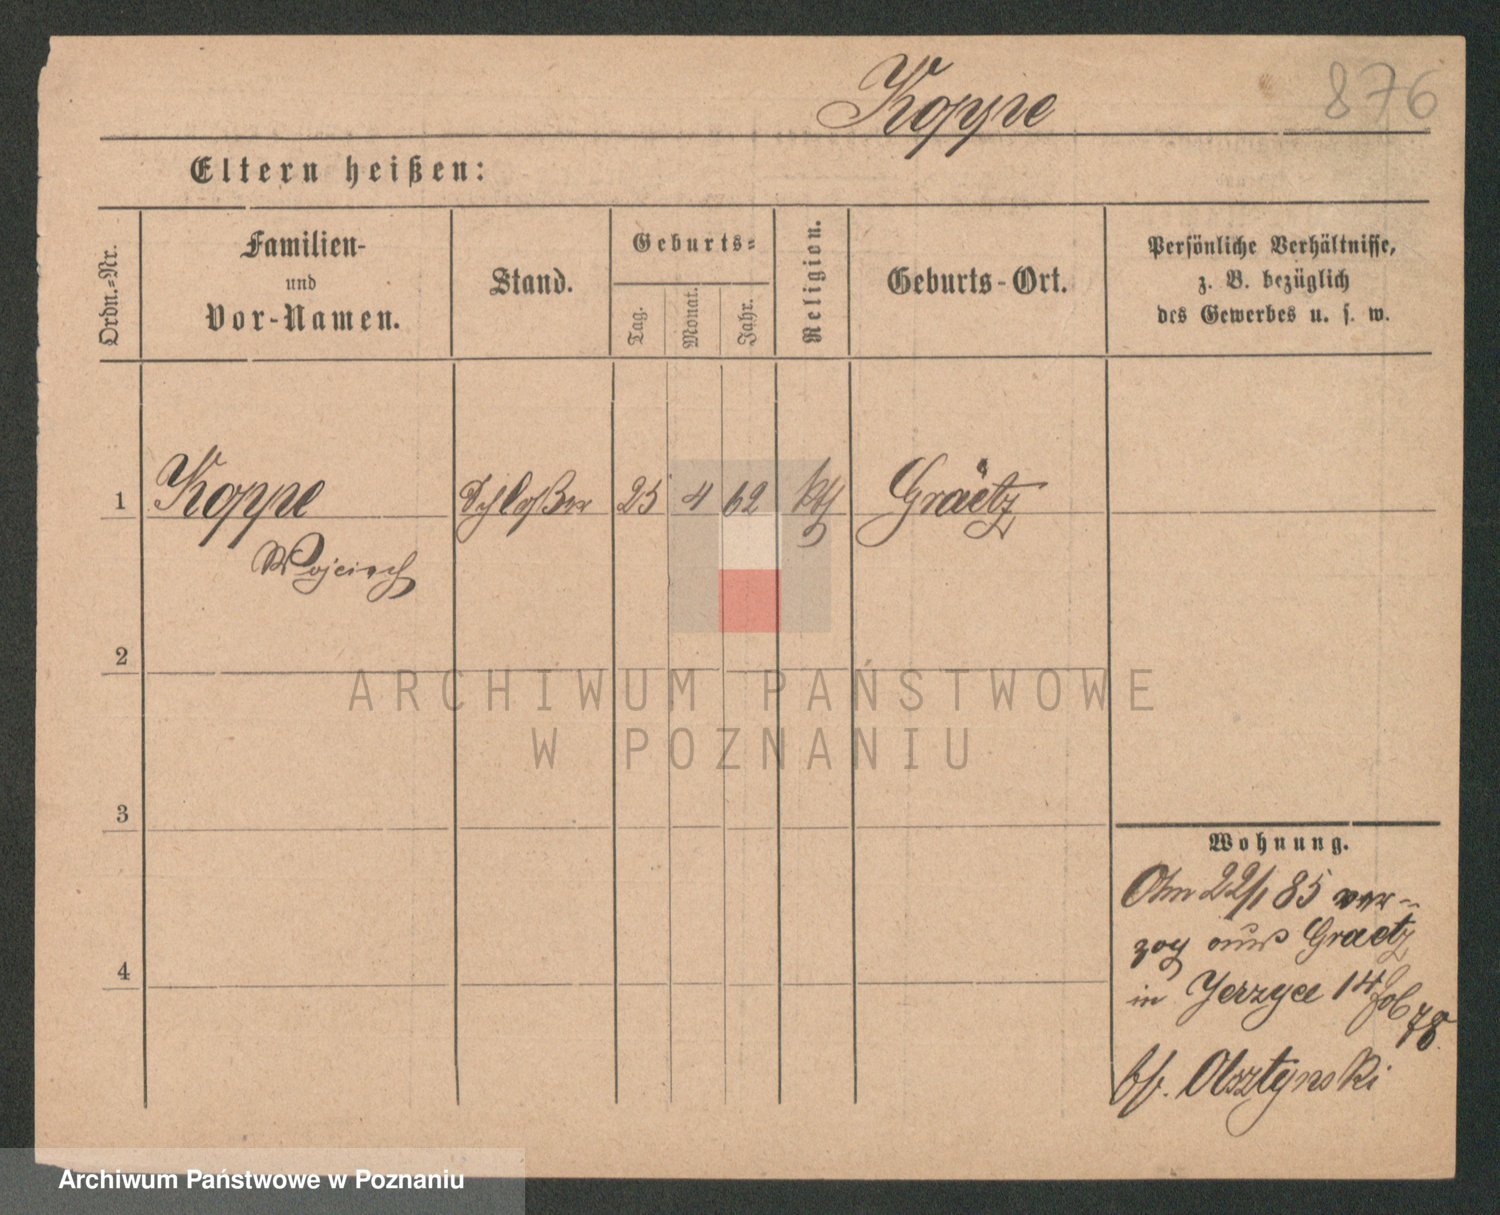 Koppe
876
Eltern heißen:
Ordn.-Nr.
Familien-
und
Vor-Namen.
Stand.
Geburts-
Tag.
Monat.
Jahr.
Religion.
Geburts-Ort.
Persönliche Verhältnisse,
z. B. bezüglich
des Gewerbes u. s. w.
1 Koppe Schloßer 25 4 62 kth Graetz
Wojciech
2
3
4
ARCHIWUM PAŃSTWOWE
W POZNANIU
Wohnung.
22/1 85 ver-
zog aus Graetz
in Jerzyce 14
78
bf. Olsztynski
Archiwum Państwowe w Poznaniu